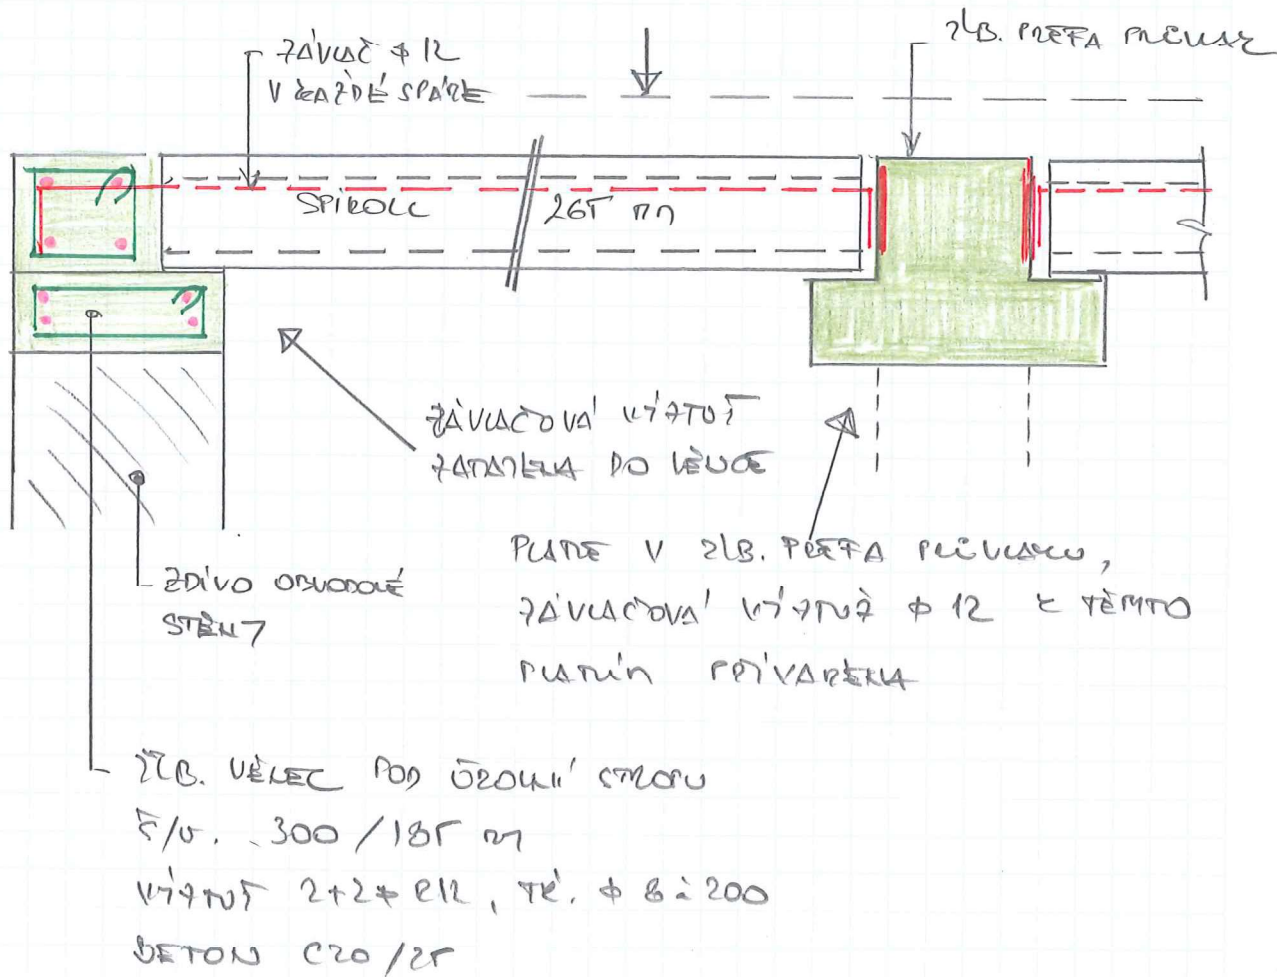 ZÁVLAČ ϕ 12
V KAŽDÉ SPÁŘE
ŽLB. PREFA PRŮVLAK
SPIROLL 265 mm
ZÁVLAČOVÁ VÝZTUŽ
ZATAŽENA DO VĚNCE
ZDIVO OBVODOVÉ
STĚNY
PLATNE V ŽLB. PREFA PRŮVLAKU,
ZÁVLAČOVÁ VÝZTUŽ ϕ 12 K TĚMTO
PLATNÍM PŘIVAŘENA
ŽLB. VĚNEC POD ÚROVNÍ STROPU
Š/V. 300 / 185 m
VÝZTUŽ 2+2 ϕ R12, TŘ. ϕ 8 à 200
BETON C20/25